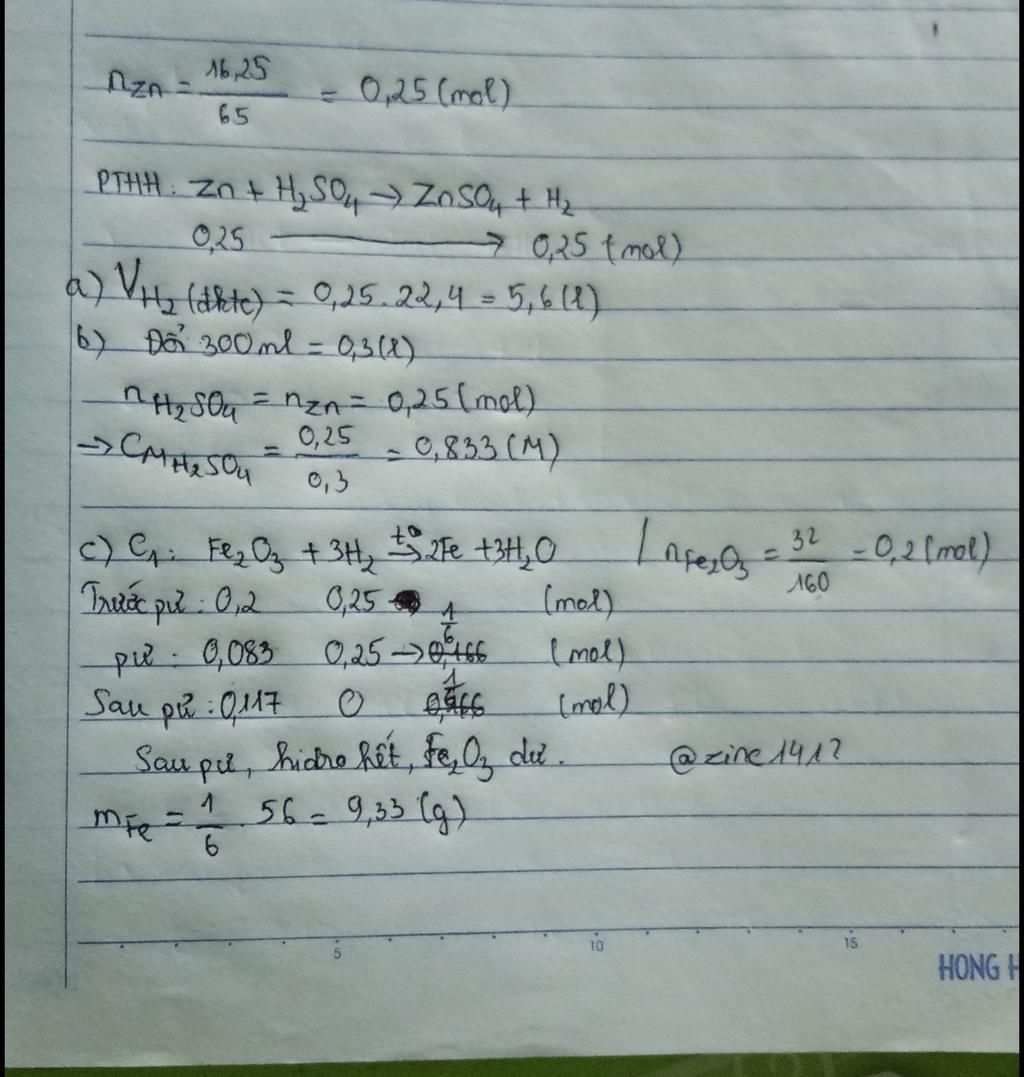 nZn = 16,25/65 = 0,25 (mol)
PTHH: Zn + H₂SO₄ → ZnSO₄ + H₂
0,25 → 0,25 (mol)
a) VH₂ (đktc) = 0,25.22,4 = 5,6 (l)
b) Đổi 300 ml = 0,3 (l)
nH₂SO₄ = nZn = 0,25 (mol)
→ CMH₂SO₄ = 0,25/0,3 = 0,833 (M)
c) C₁: Fe₂O₃ + 3H₂ →t° 2Fe + 3H₂O / nFe₂O₃ = 32/160 = 0,2 (mol)
Trước pư: 0,2 0,25 (mol)
pư: 0,083 0,25 → 1/6 (mol)
Sau pư: 0,117 0 1/6 (mol)
Sau pư, hidro hết, Fe₂O₃ dư. @zinc1412
mFe = 1/6 . 56 = 9,33 (g)
5 10 15
HONG H